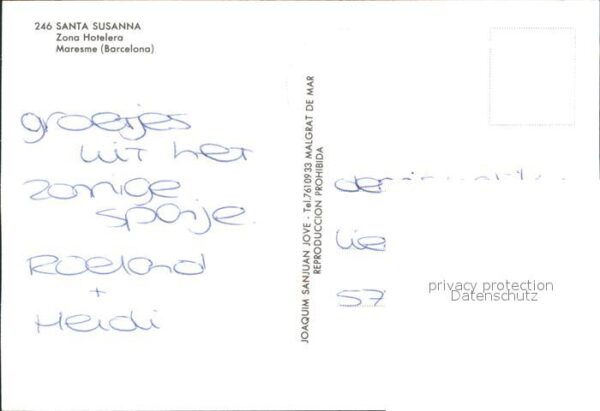 246 SANTA SUSANNA
Zona Hotelera
Maresme (Barcelona)
groetjes
uit het
zonnige
spanje
Roeland
+
Heidi
JOAQUIM SANJUAN JOVE - Tel.7610933 MALGRAT DE MAR
REPRODUCCION PROHIBIDA
57
privacy protection
Datenschutz